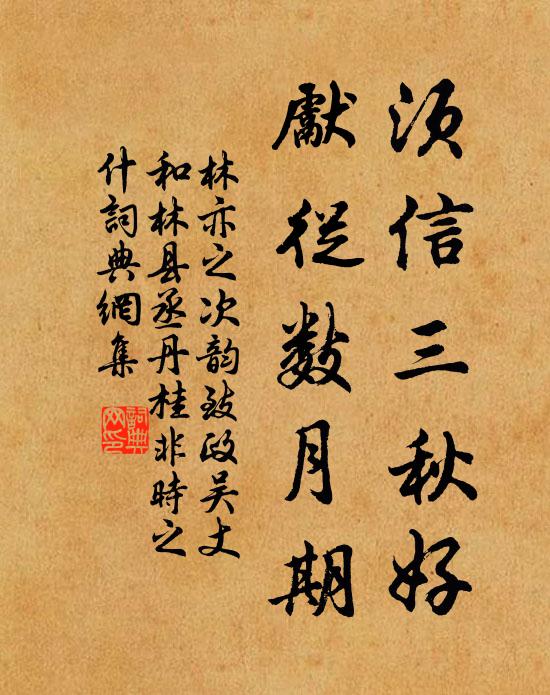 須信三秋好
獻從數月期
林亦之次韵致政吴丈
和林县丞丹桂非時之
什詞典網集
詞典
网印